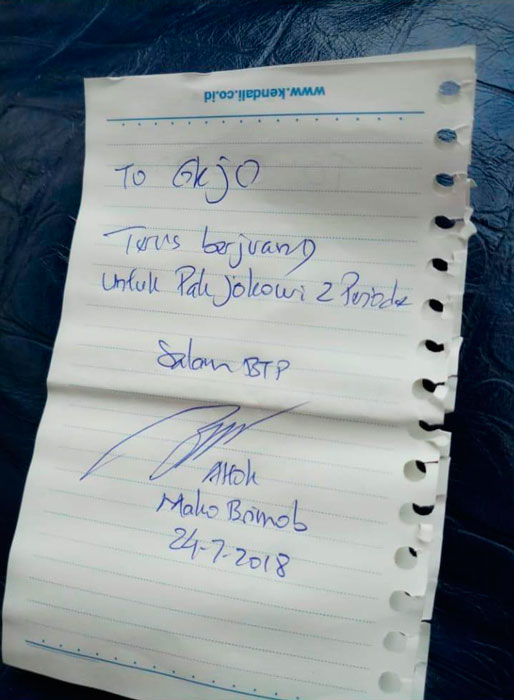 www.kendali.co.id
To GkjO
Terus berjuang
untuk Pak Jokowi 2 Periode
Salam BTP
AHok
Mako Brimob
24-7-2018